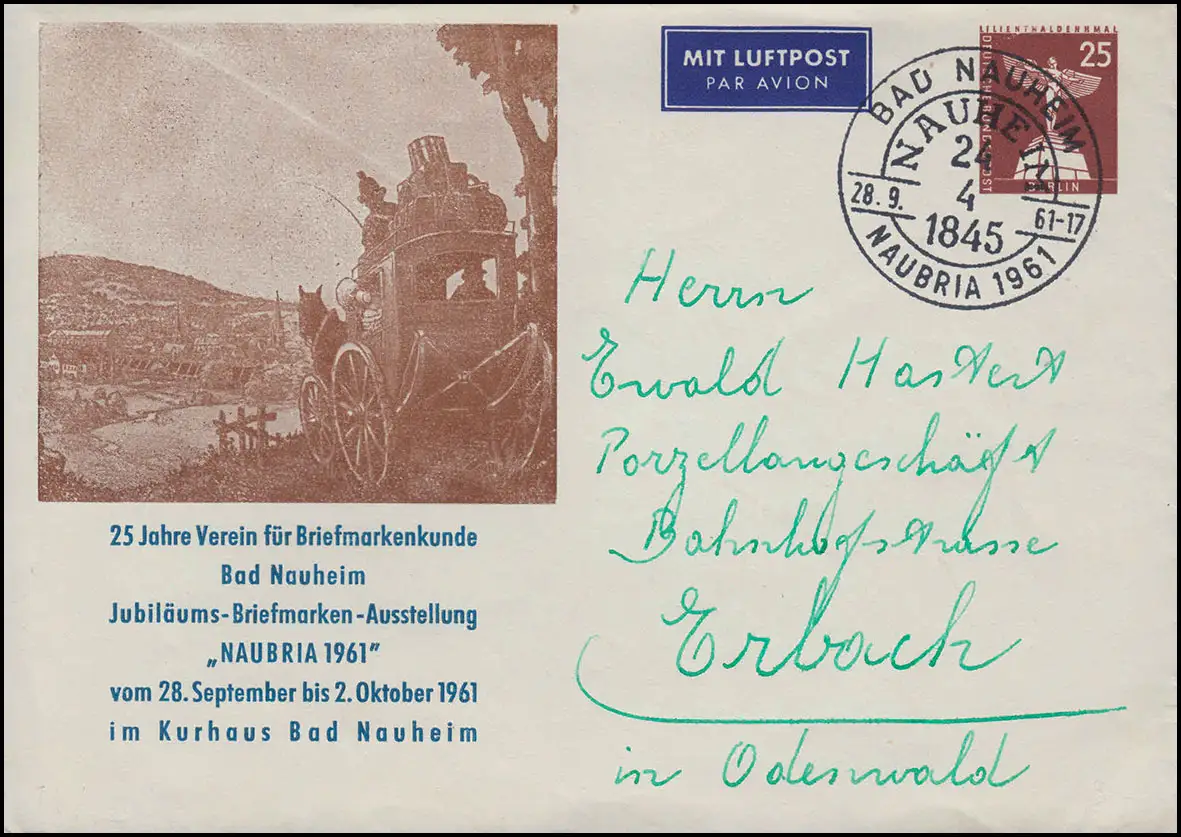 MIT LUFTPOST
PAR AVION
LILIENTHALDENKMAL
25
DEUTSCHE BUNDESPOST
BERLIN
BAD NAUHEIM
NAUHEIM
24
4
1845
28.9.
61-17
NAUBRIA 1961
Herrn
Ewald Hastert
Porzellangeschäft
Bahnhofstrasse
Erbach
in Odenwald
25 Jahre Verein für Briefmarkenkunde
Bad Nauheim
Jubiläums-Briefmarken-Ausstellung
„NAUBRIA 1961”
vom 28. September bis 2. Oktober 1961
im Kurhaus Bad Nauheim